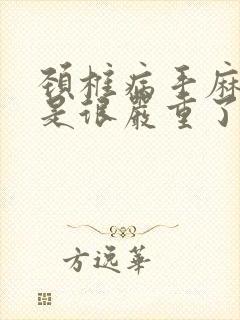 頚椎病手麻
是很嚴重了
方逸華